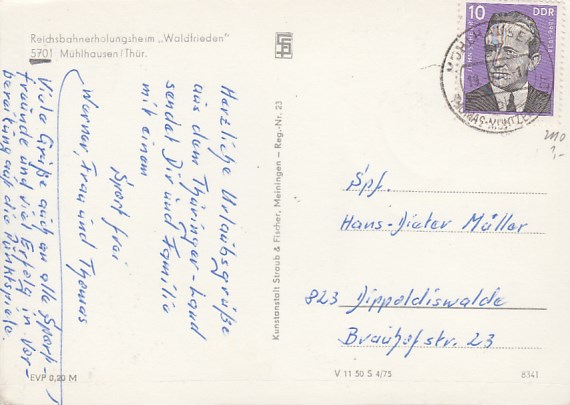 Reichsbahnerholungsheim „Waldfrieden"
5701 Mühlhausen/Thür.
Herzliche Urlaubsgrüße
aus dem Thüringer-Land
sendet Dir und Familie
mit einem
Sport frei
Werner, Frau und Thomas
Viele Grüße auch an alle Sport-
freunde und viel Erfolg in Vor-
bereitung auf die Punktspiele.
EVP 0,20 M
Kunstanstalt Straub & Fischer, Meiningen – Reg.-Nr. 23
10 DDR
MÜHLHAUSEN
THOMAS-MÜNTZER
Spf.
Hans-Dieter Müller
823 Dippoldiswalde
Brauhofstr. 23
V 11 50 S 4/75
8341